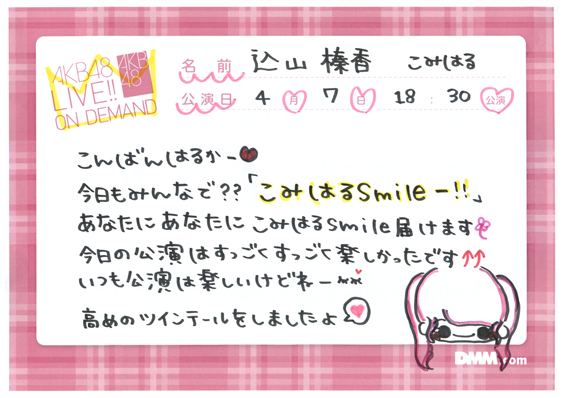 AKB48
LIVE!!
ON DEMAND
AKB
48
名前 込山榛香 こみはる
公演日 4月7日 18:30 公演
こんばんはるかー
今日もみんなで??「こみはるSmileー!!」
あなたにあなたにこみはるsmile届けます
今日の公演はすっごくすっごく楽しかったです↑↑
いつも公演は楽しいけどねー
高めのツインテールをしましたよ
DMM.com